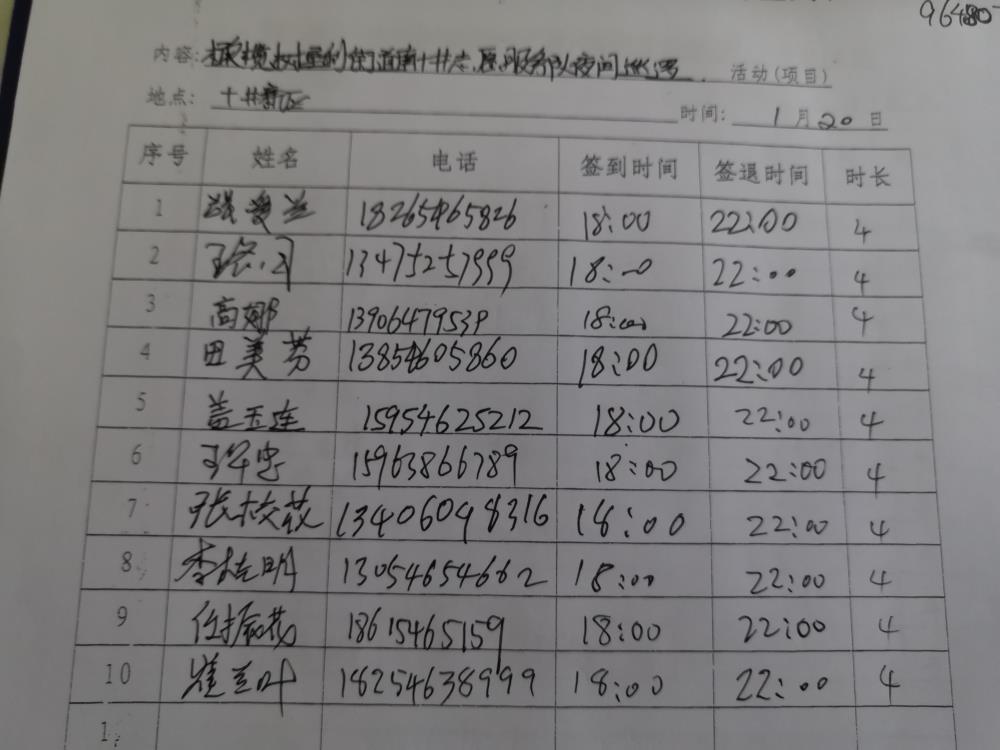 96480
内容: 橄榄树 街道 十井志愿服务队夜间巡逻 活动(项目)
地点: 十井
时间: 1月20日
序号 姓名 电话 签到时间 签退时间 时长
1 18265465826 18:00 22:00 4
2 13475257999 18:00 22:00 4
3 高娜 13906479539 18:00 22:00 4
4 田美芳 13854605860 18:00 22:00 4
5 盖玉连 15954625212 18:00 22:00 4
6 15963866789 18:00 22:00 4
7 张校花 13406098316 18:00 22:00 4
8 李桂明 13054654662 18:00 22:00 4
9 任振花 18615465159 18:00 22:00 4
10 崔兰叶 18254638999 18:00 22:00 4
1